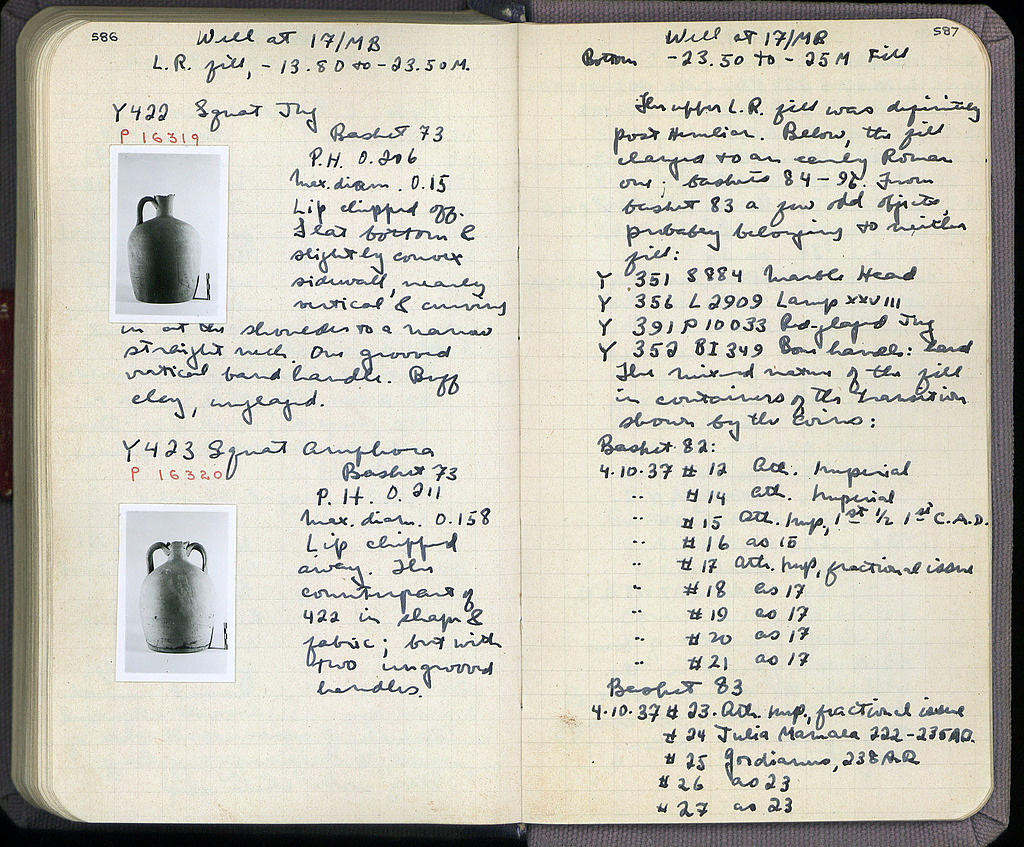 586
Well at 17/MB
L.R. fill, -13.80 to -23.50 M.
Y422 Squat Jug
P 16319
Basket 73
P.H. 0.206
Max. diam. 0.15
Lip chipped off.
Flat bottom &
slightly convex
sidewall, nearly
vertical & curving
in at the shoulder to a narrow
straight neck. One grooved
vertical band handle. Buff
clay, unglazed.
Y423 Squat Amphora
P 16320
Basket 73
P.H. 0.211
Max. diam. 0.158
Lip chipped
away. The
counterpart of
422 in shape &
fabric; but with
two ungrooved
handles.
587
Well at 17/MB
Bottom -23.50 to -25 M Fill
The upper L.R. fill was definitely
post Herulian. Below, the fill
changed to an early Roman
one; baskets 84-98. From
basket 83 a few odd objects,
probably belonging to neither
fill:
Y 351 S 884 Marble Head
Y 356 L 2909 Lamp XXVIII
Y 391 P 10033 Red-glazed Jug
Y 352 BI 349 Bone handle:
The mixed nature of the fill
in containers of the transition
shown by the coins:
Basket 82:
4.10.37 # 12 Ath. Imperial
" # 14 Ath. Imperial
" # 15 Ath. Imp, 1st 1/2 1st C. A.D.
" # 16 as 15
" # 17 Ath. Imp, fractional issue
" # 18 as 17
" # 19 as 17
" # 20 as 17
" # 21 as 17
Basket 83
4.10.37 # 23. Ath. Imp, fractional issue
# 24 Julia Mamaea 222-235 A.D.
# 25 Gordianus, 238 A.D.
# 26 as 23
# 27 as 23